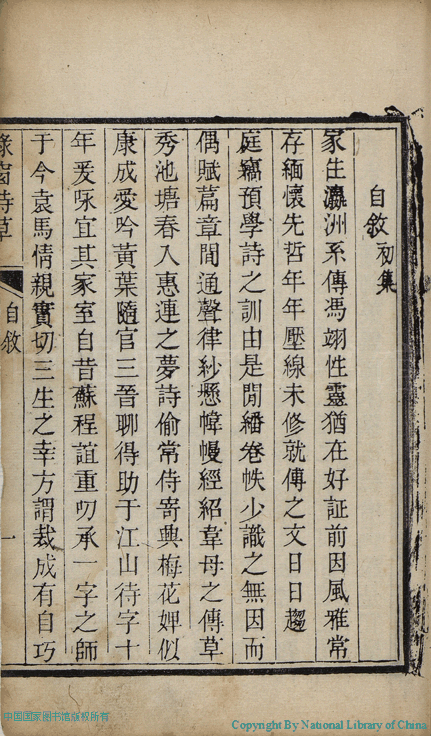 自敘 初集
家生瀛洲系傳馮翊性靈猶在好証前因風雅常
存緬懷先哲年年壓線未修就傳之文日日趨
庭竊預學詩之訓由是閒繙卷帙少識之無因而
偶賦篇章間通聲律紗懸幃幔經紹韋母之傳草
秀池塘春入惠連之夢詩偷常侍寄興梅花婢似
康成愛吟黃葉隨官三晉聊得助于江山待字十
年爰咏宜其家室自昔蘇程誼重叨承一字之師
于今袁馬情親實切三生之幸方謂裁成有自巧
綠窗詩草
自敘
一
中国国家图书馆版权所有
Copyright By National Library of China